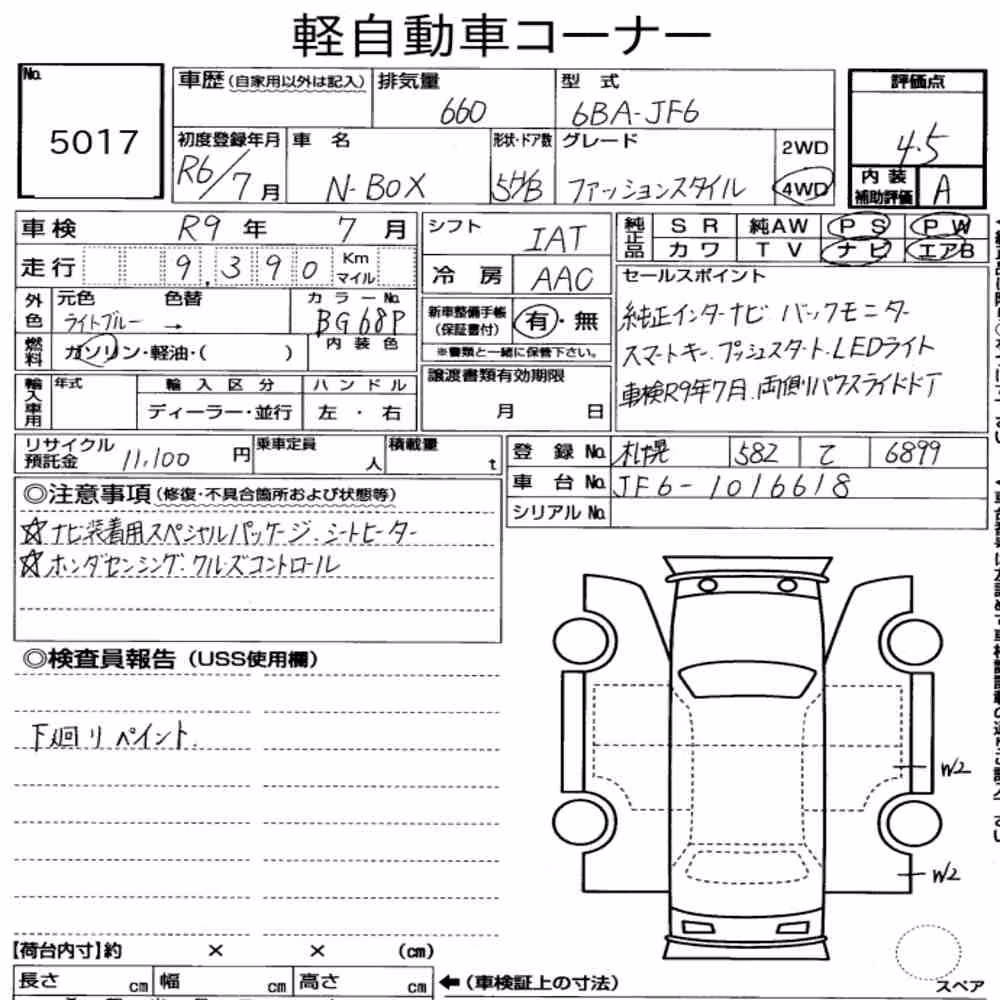 軽自動車コーナー
No.
5017
車歴(自家用以外は記入)
排気量
660
型 式
6BA-JF6
評価点
4.5
初度登録年月
R6/7月
車 名
N-BOX
形状・ドア数
5H/B
グレード
ファッションスタイル
2WD
4WD
内装
補助評価
A
車検 R9年 7月
走行 9,390 Km
マイル
外色
元色 色替
ライトブルー →
カラーNo.
BG68P
燃料
ガソリン・軽油・( )
内装色
輸入車用
年式
輸入区分
ディーラー・並行
ハンドル
左・右
シフト
IAT
冷房
AAC
新車整備手帳
(保証書付)
有・無
※書類と一緒に保管下さい。
譲渡書類有効期限
月 日
純正品
SR 純AW PS PW
カワ TV ナビ エアB
セールスポイント
純正インターナビ バックモニター
スマートキー.プッシュスタート.LEDライト
車検R9年7月.両側パワスライドドア
リサイクル
預託金
11,100円
乗車定員
人
積載量
t
登録No. 札幌 582 て 6899
車台No. JF6-1016618
シリアルNo.
◎注意事項(修復・不具合箇所および状態等)
☆ナビ装着用スペシャルパッケージ.シートヒーター
☆ホンダセンシング.クルーズコントロール
◎検査員報告(USS使用欄)
下廻りペイント.
W2
W2
【荷台内寸】約 × × (cm)
長さ cm 幅 cm 高さ cm
←(車検証上の寸法)
スペア